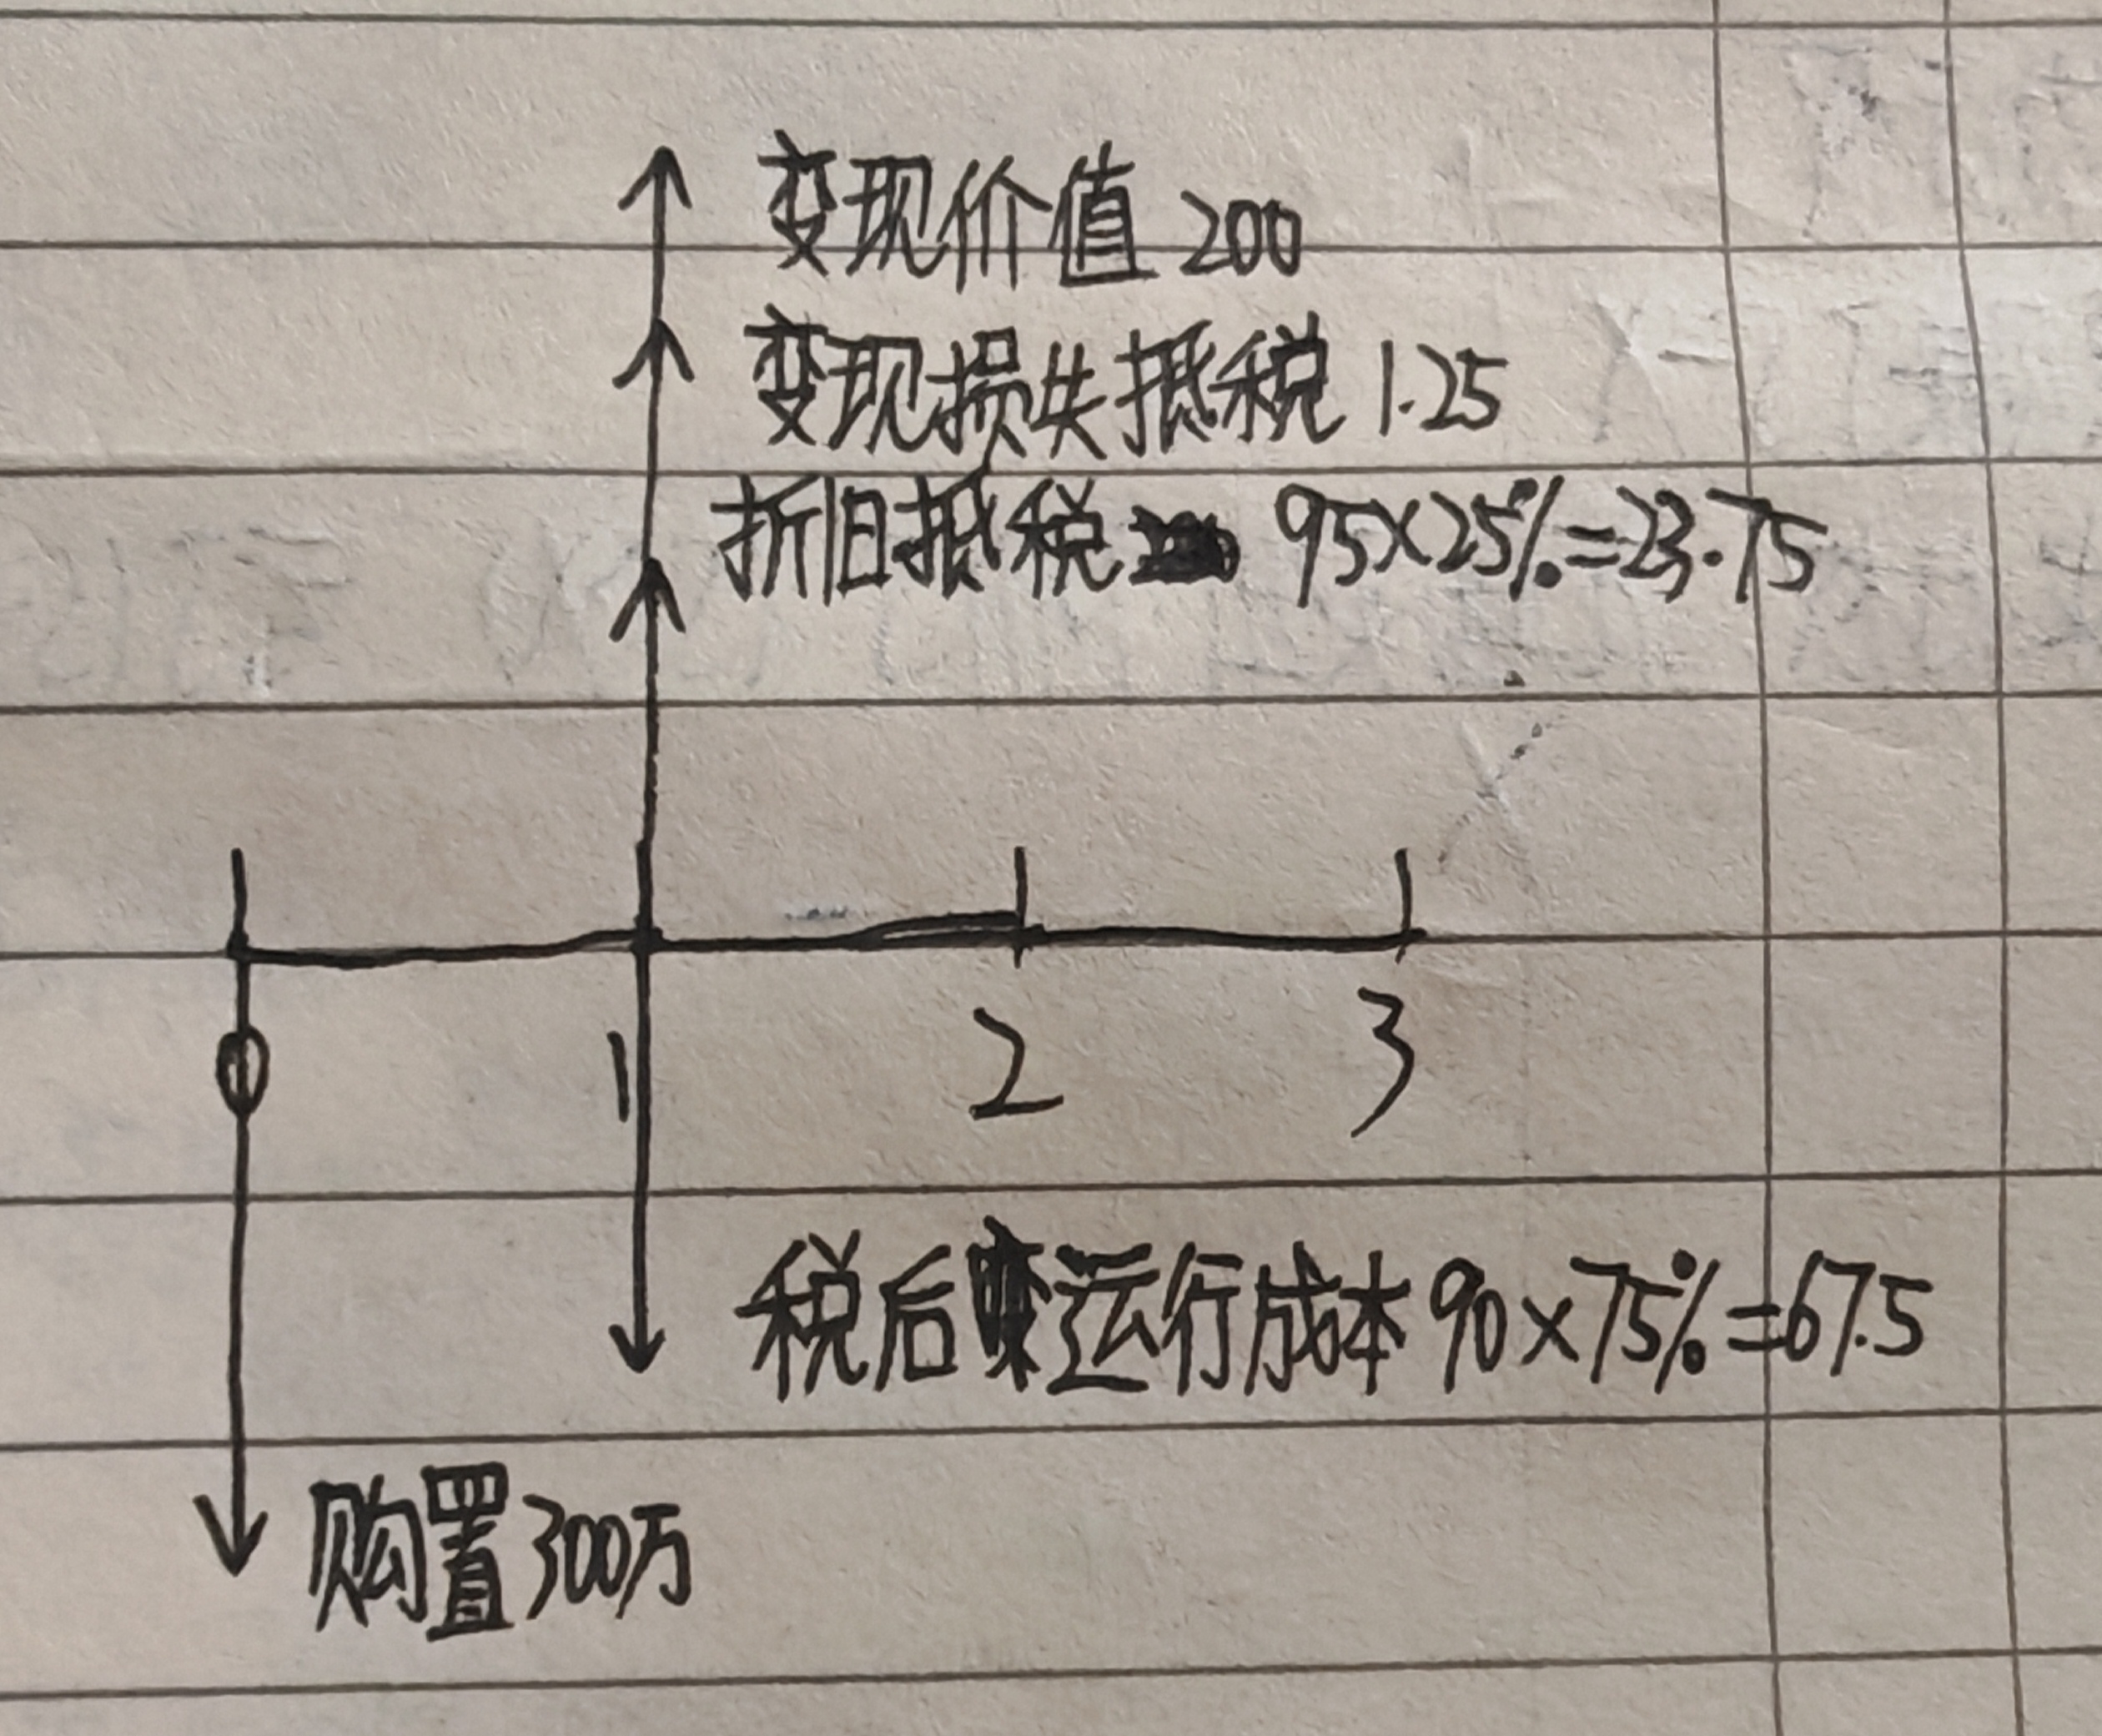 变现价值 200
变现损失抵税 1.25
折旧抵税 95×25%=23.75
0 1 2 3
税后运行成本 90×75%=67.5
购置300万